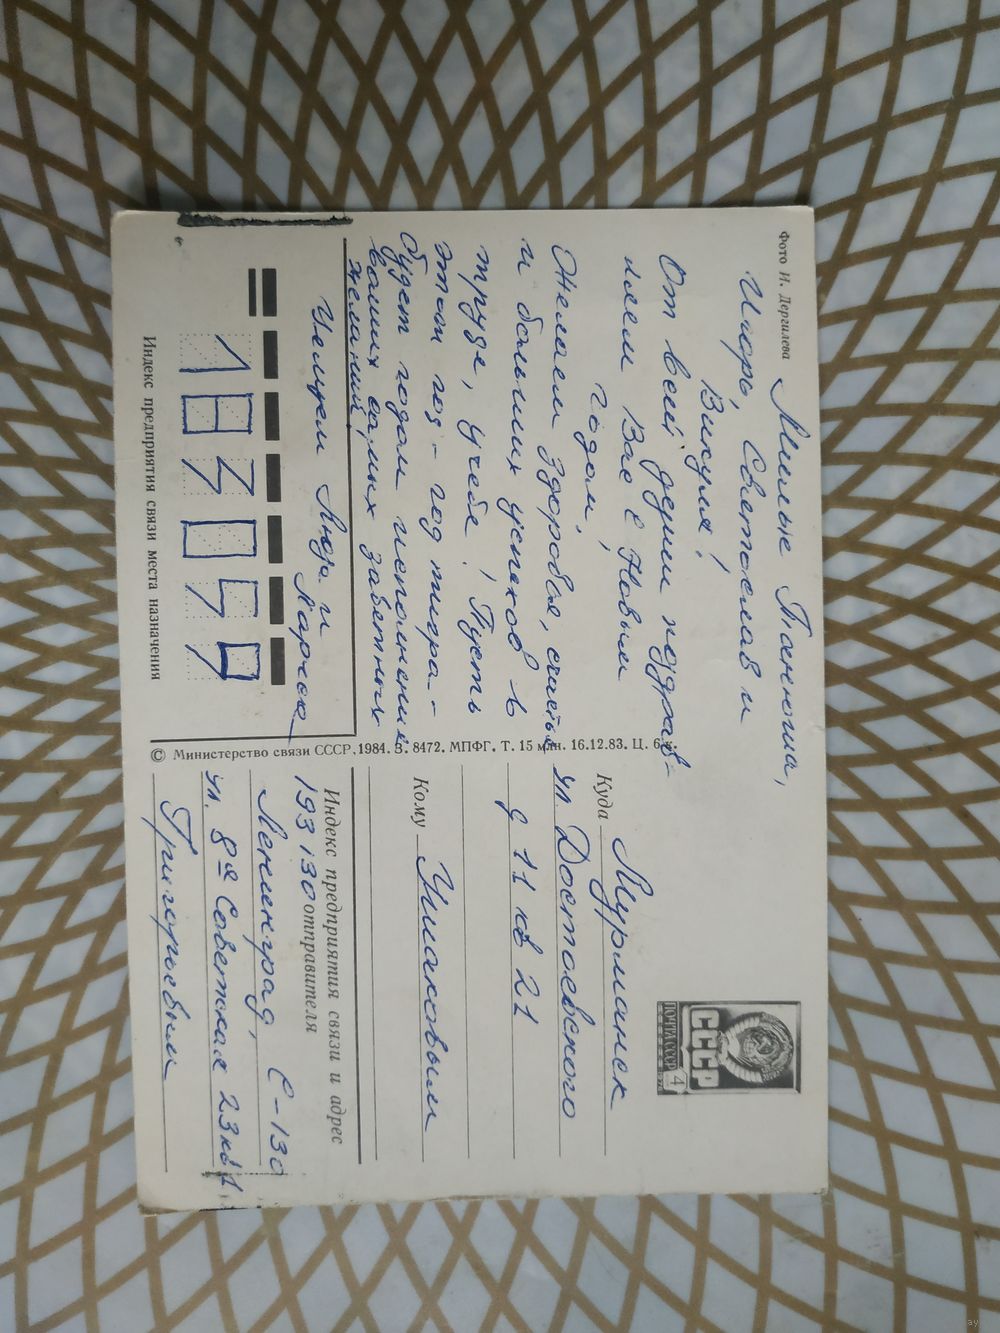 Фото И. Дергилева
Милые Танюша,
Игорь, Святослав и
Викуля!
От всей души поздрав-
ляем Вас с Новым
годом,
Желаем здоровья, счастья
и больших успехов в
труде, учебе! Пусть
этот год - год тигра -
будет годом исполнения
ваших самых заветных
желаний
Целуем Люда и
Лариса
183035
Индекс предприятия связи места назначения
© Министерство связи СССР, 1984. З. 8472. МПФГ. Т. 15 млн. 16.12.83. Ц. 6 к.
СССР
ПОЧТА СССР 4
Куда Мурманск
ул. Достоевского
д 11 кв 21
Кому Ушаковым
Индекс предприятия связи и адрес
193130 отправителя
Ленинград, С-130
ул. 8я Советская 23 кв 1
Григорьевым